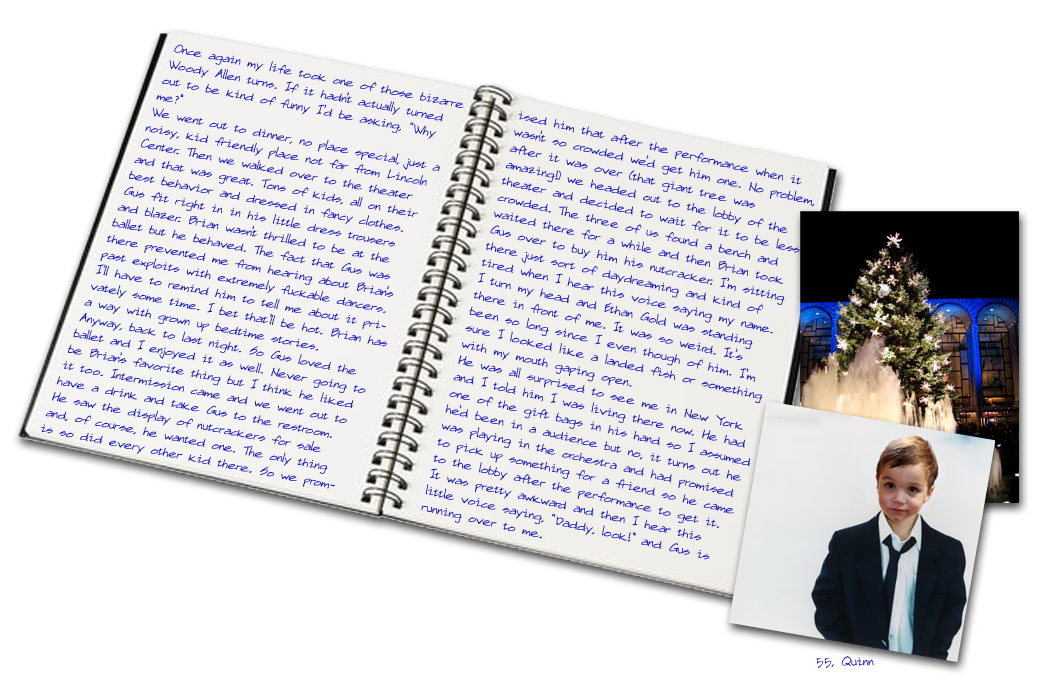 Once again my life took one of those bizarre
Woody Allen turns. If it hadn't actually turned
out to be kind of funny I'd be asking, "Why
me?"
We went out to dinner, no place special, just a
noisy, kid friendly place not far from Lincoln
Center. Then we walked over to the theater
and that was great. Tons of kids, all on their
best behavior and dressed in fancy clothes.
Gus fit right in in his little dress trousers
and blazer. Brian wasn't thrilled to be at the
ballet but he behaved. The fact that Gus was
there prevented me from hearing about Brian's
past exploits with extremely fuckable dancers.
I'll have to remind him to tell me about it pri-
vately some time. I bet that'll be hot. Brian has
a way with grown up bedtime stories.
Anyway, back to last night. So Gus loved the
ballet and I enjoyed it as well. Never going to
be Brian's favorite thing but I think he liked
it too. Intermission came and we went out to
have a drink and take Gus to the restroom.
He saw the display of nutcrackers for sale
and, of course, he wanted one. The only thing
is so did every other kid there. So we prom-
ised him that after the performance when it
wasn't so crowded we'd get him one. No problem,
after it was over (that giant tree was
amazing!) we headed out to the lobby of the
theater and decided to wait for it to be less
crowded. The three of us found a bench and
waited there for a while and then Brian took
Gus over to buy him his nutcracker. I'm sitting
there just sort of daydreaming and kind of
tired when I hear this voice saying my name.
I turn my head and Ethan Gold was standing
there in front of me. It was so weird. It's
been so long since I even though of him. I'm
sure I looked like a landed fish or something
with my mouth gaping open.
He was all surprised to see me in New York
and I told him I was living there now. He had
one of the gift bags in his hand so I assumed
he'd been in a audience but no, it turns out he
was playing in the orchestra and had promised
to pick up something for a friend so he came
to the lobby after the performance to get it.
It was pretty awkward and then I hear this
little voice saying, "Daddy, look!" and Gus is
running over to me.
55, Quinn